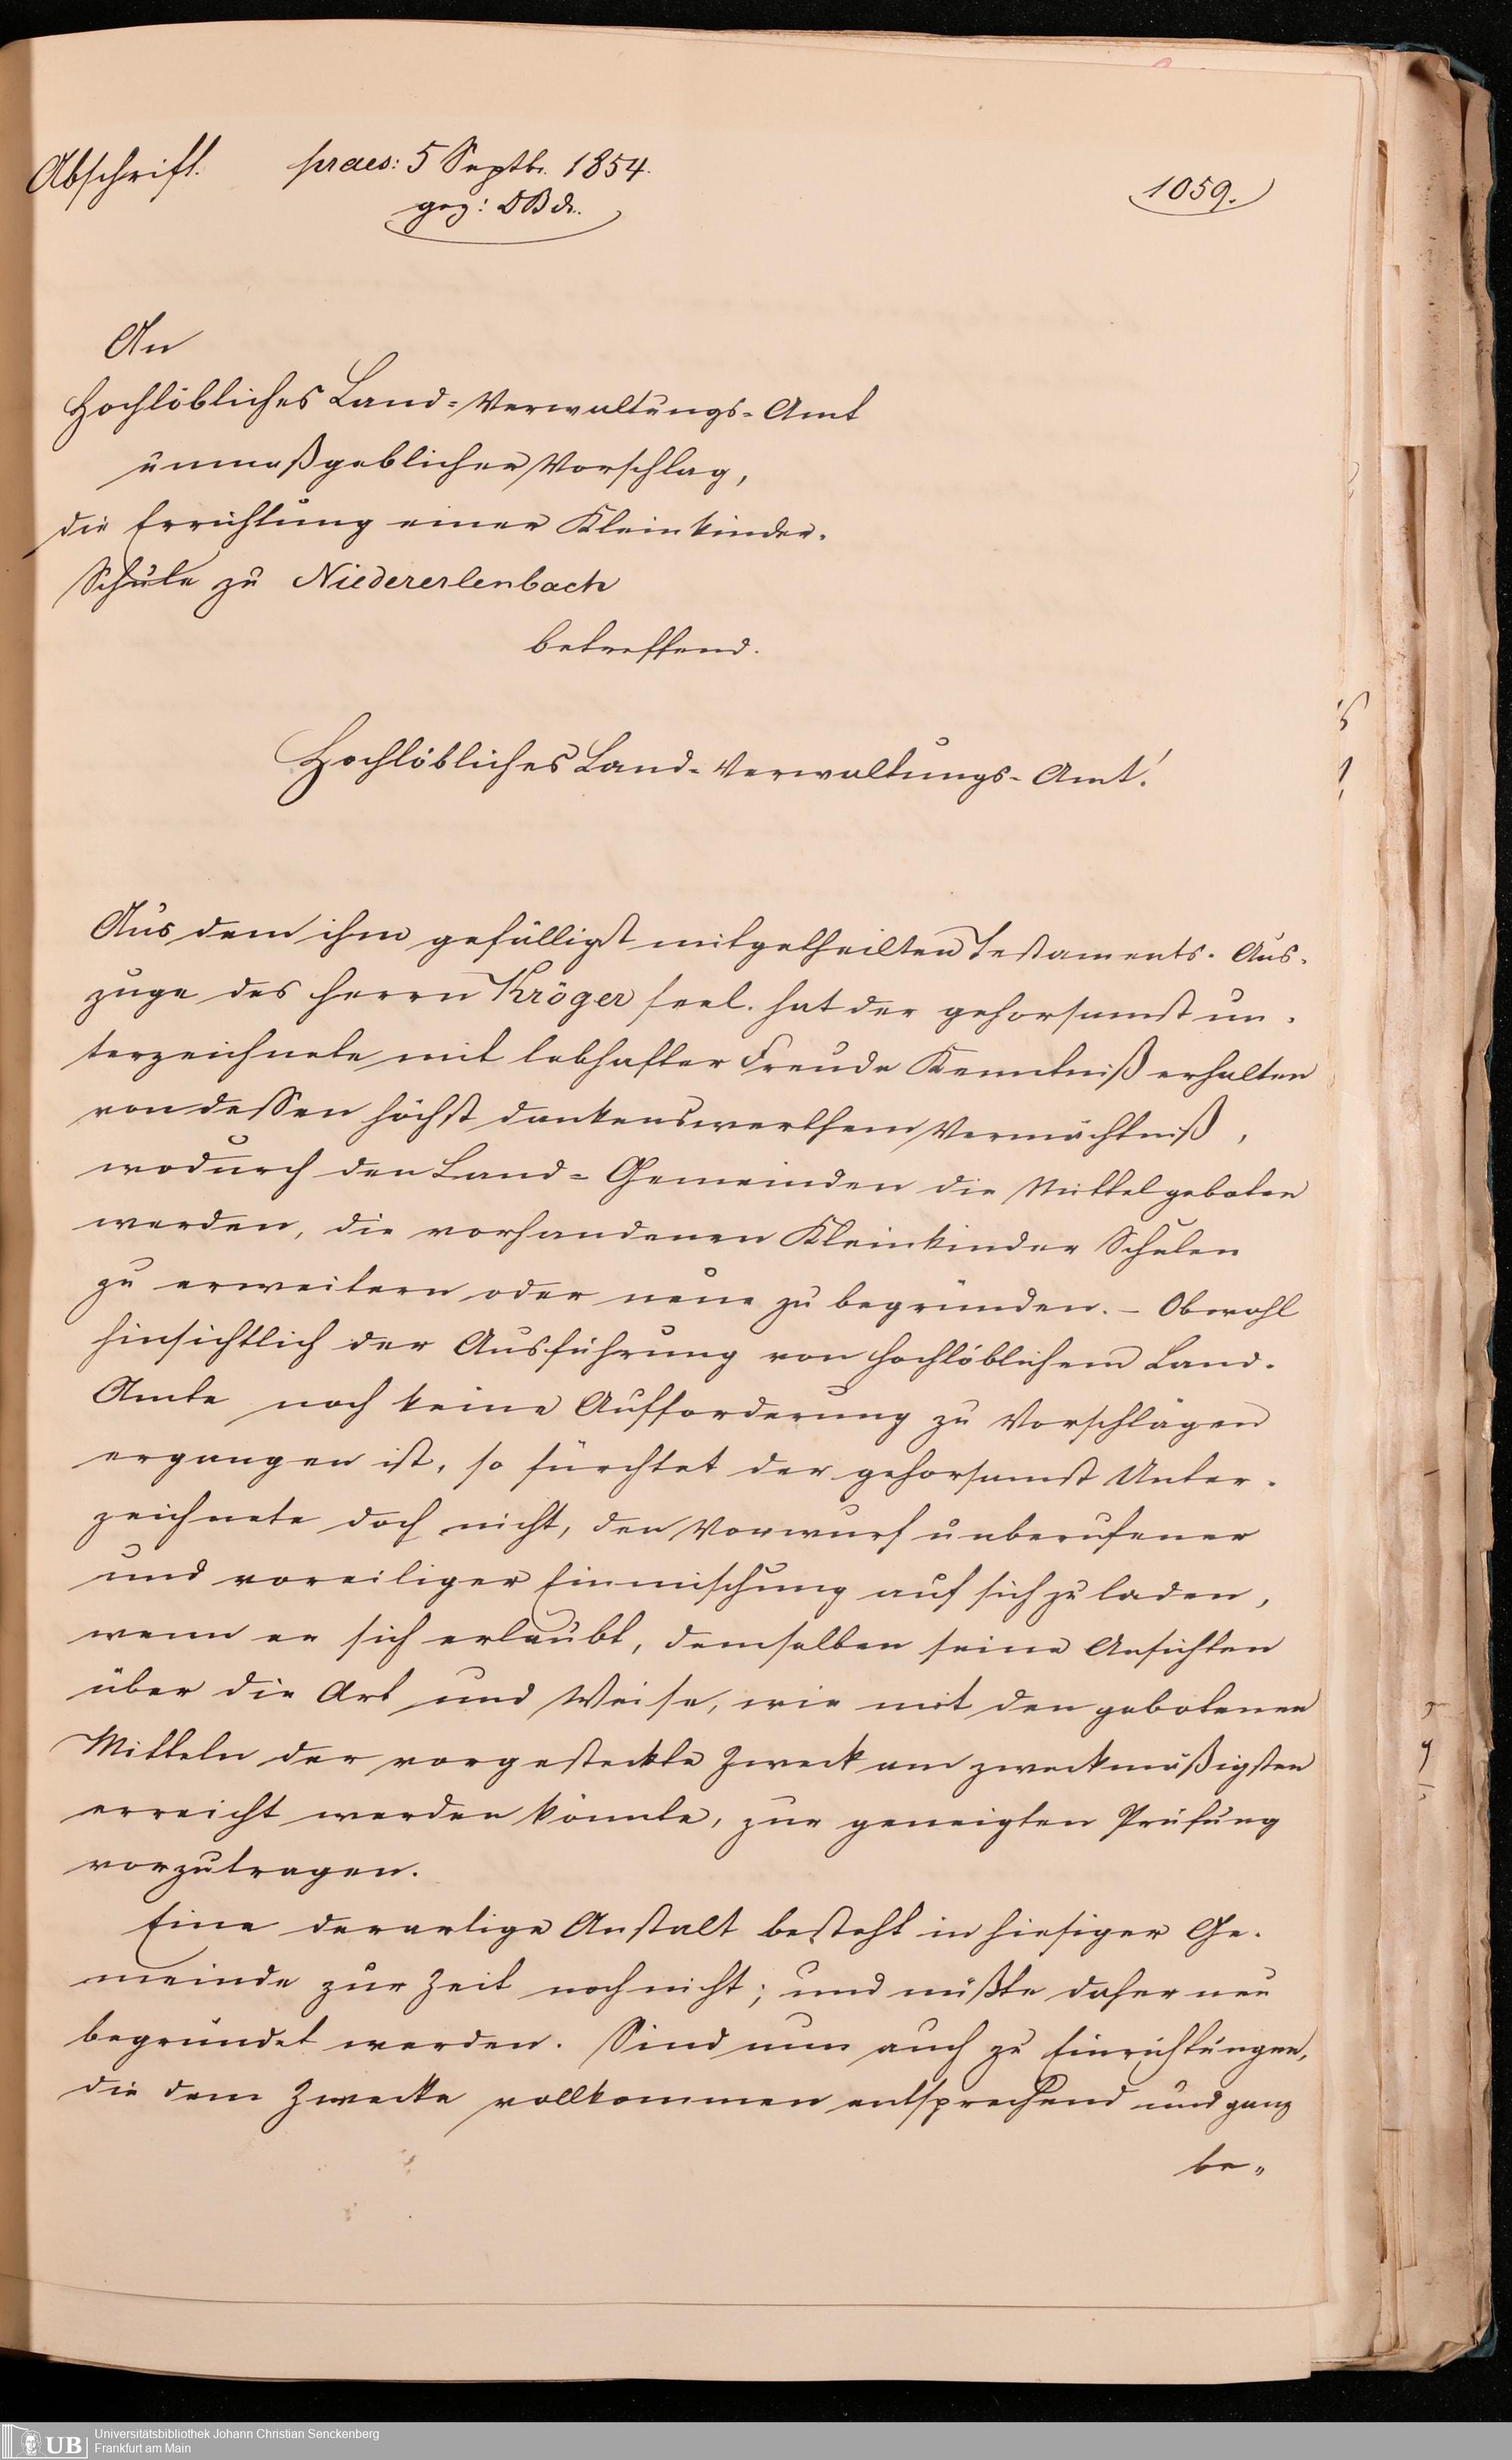 Abschrift. praes: 5 Septbr. 1854.
gez: DBdr.
1059.
An
Hochlöbliches Land-Verwaltungs-Amt
unmaßgeblicher Vorschlag,
die Errichtung einer Kleinkinder-
Schule zu Niedererlenbach
betreffend.
Hochlöbliches Land-Verwaltungs-Amt!
Aus dem ihm gefälligst mitgetheilten Testaments-Aus-
zuge des Herrn Kröger seel. hat der gehorsamst un-
terzeichnete mit lebhafter Freude Kenntniß erhalten
von dessen höchst dankenswerthem Vermächtniß,
wodurch den Land-Gemeinden die Mittel geboten
werden, die vorhandenen Kleinkinder Schulen
zu erweitern oder neue zu begründen. – Obwohl
hinsichtlich der Ausführung von Hochlöblichem Land-
Amte noch keine Aufforderung zu Vorschlägen
ergangen ist, so fürchtet der gehorsamst Unter-
zeichnete doch nicht, den Vorwurf unberufener
und voreiliger Einmischung auf sich zu laden,
wenn er sich erlaubt, demselben seine Ansichten
über die Art und Weise, wie mit den gebotenen
Mitteln der vorgesteckte Zweck am zweckmäßigsten
erreicht werden könnte, zur geneigten Prüfung
vorzutragen.
Eine derartige Anstalt besteht in hiesiger Ge-
meinde zur Zeit noch nicht; und müßte daher neu
begründet werden. Sind nun auch zu Einrichtungen,
die dem Zwecke vollkommen entsprechend und ganz
be-
UB
Universitätsbibliothek Johann Christian Senckenberg
Frankfurt am Main